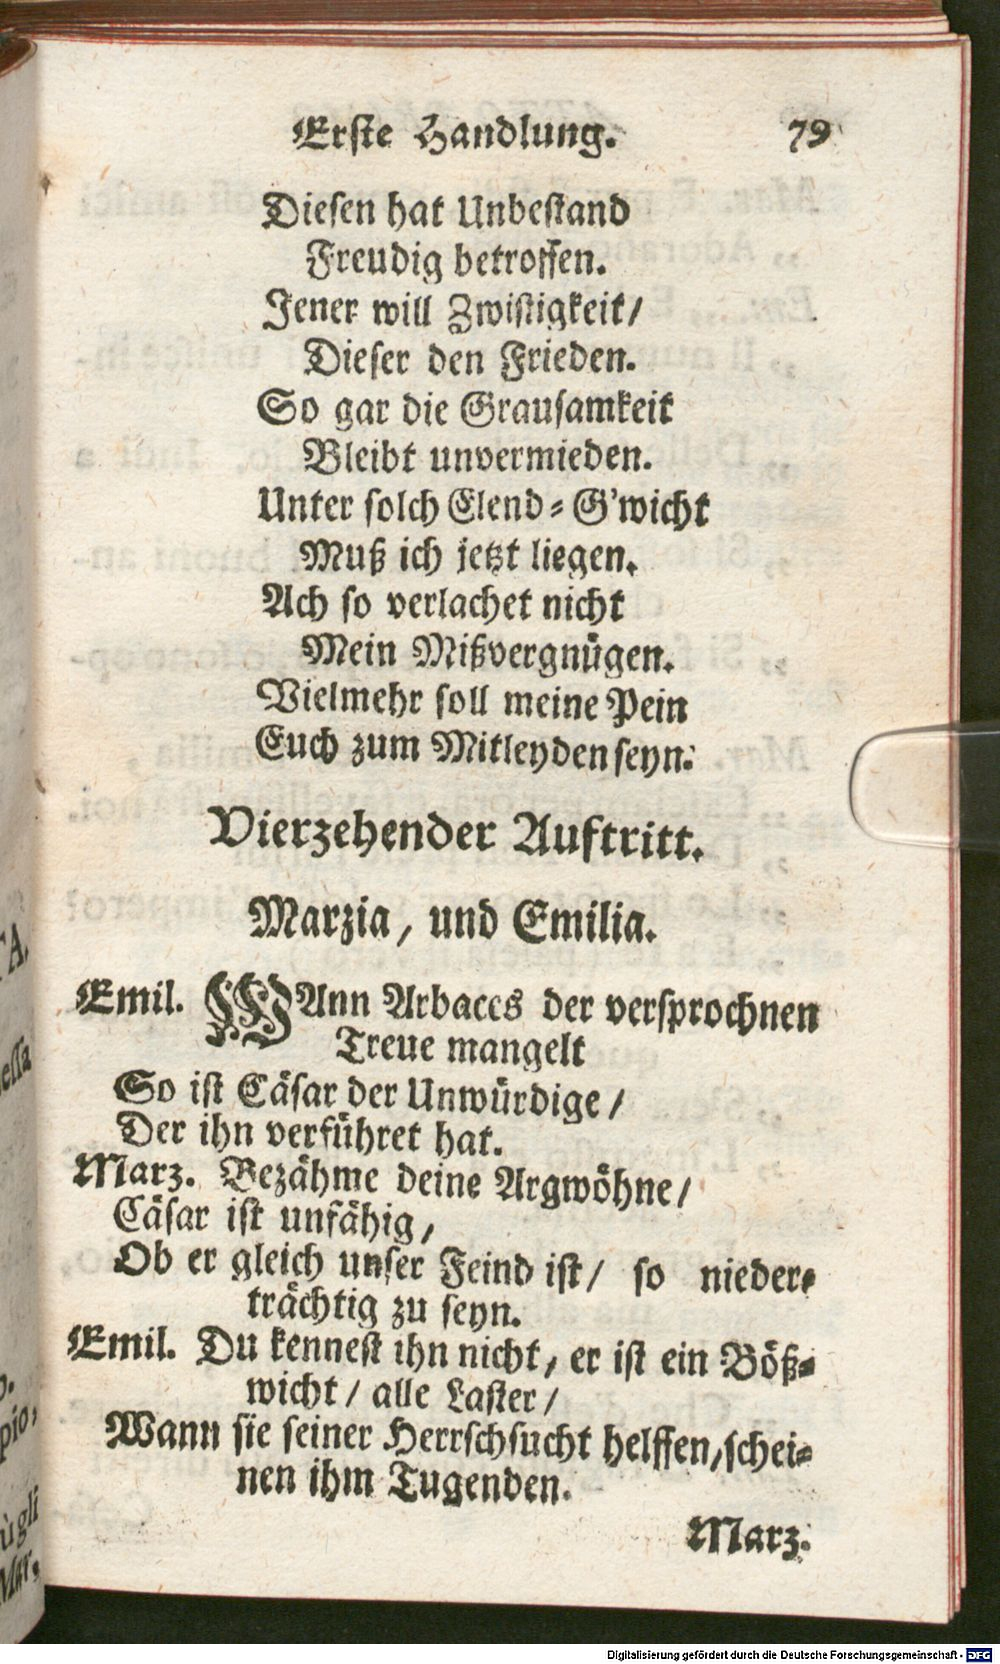 Erste Handlung. 79
Diesen hat Unbestand
Freudig betroffen.
Jener will Zwistigkeit/
Dieser den Frieden.
So gar die Grausamkeit
Bleibt unvermieden.
Unter solch Elend-G'wicht
Muß ich jetzt liegen.
Ach so verlachet nicht
Mein Mißvergnügen.
Vielmehr soll meine Pein
Euch zum Mitleyden seyn.
Vierzehender Auftritt.
Marzia, und Emilia.
Emil. WAnn Arbaces der versprochnen
Treue mangelt
So ist Cäsar der Unwürdige/
Der ihn verführet hat.
Marz. Bezähme deine Argwöhne/
Cäsar ist unfähig,
Ob er gleich unser Feind ist/ so nieder-
trächtig zu seyn.
Emil. Du kennest ihn nicht, er ist ein Böß-
wicht/ alle Laster/
Wann sie seiner Herrschsucht helffen, schei-
nen ihm Tugenden.
Marz.
TA.
essa
o.
pio,
ù gli
Mar.
Digitalisierung gefördert durch die Deutsche Forschungsgemeinschaft - DFG